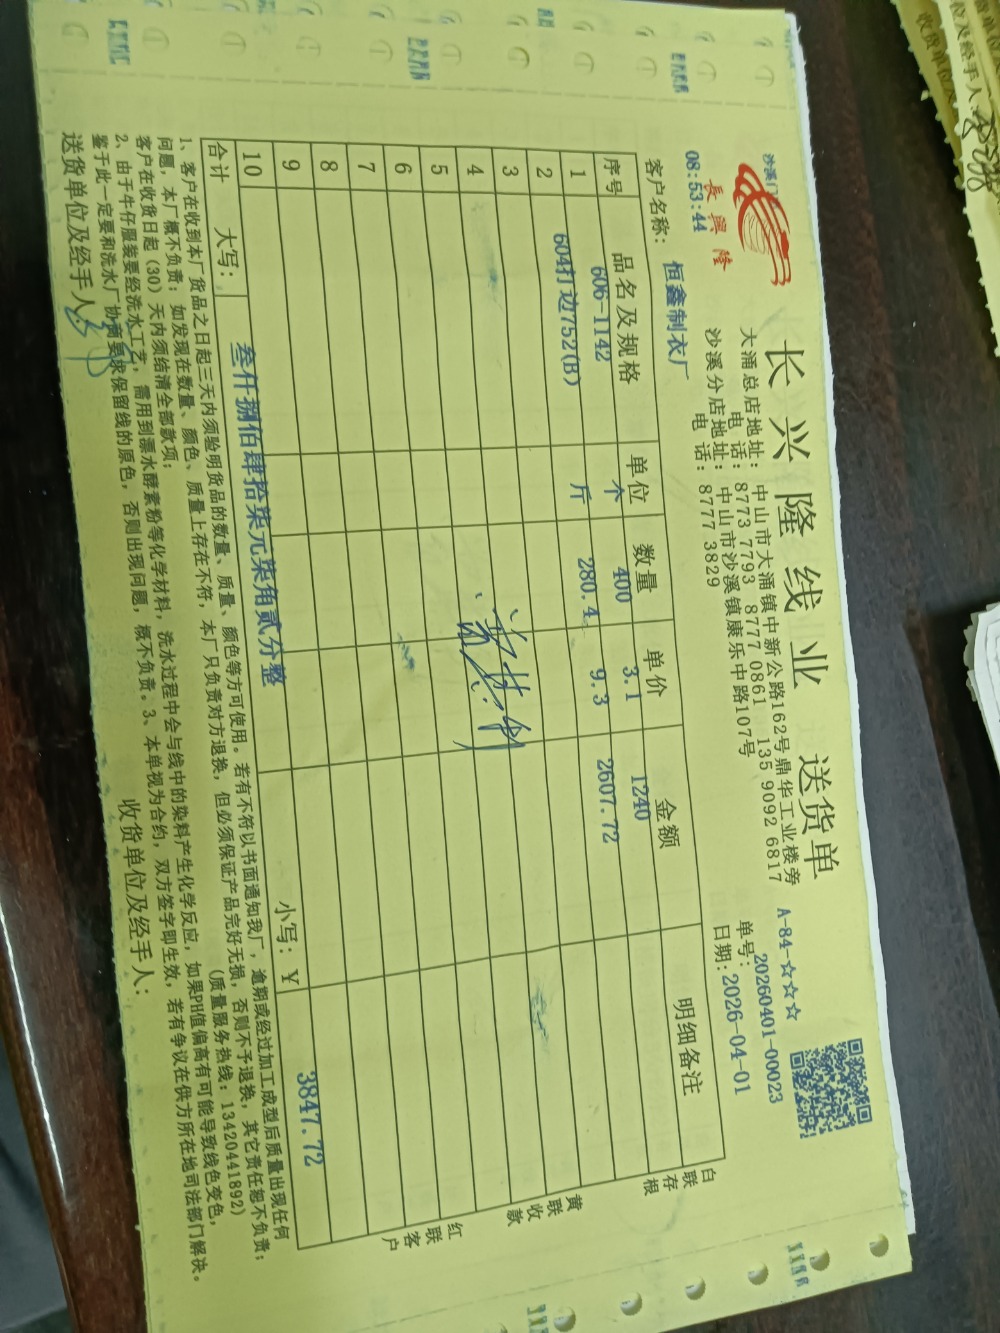 長興隆
长兴隆线业 送货单
大涌总店地址: 中山市大涌镇中新公路162号鼎华工业楼旁
电话: 8773 7793 8777 0861 135 9092 6817
沙溪分店地址: 中山市沙溪镇康乐中路107号
电话: 8777 3829
A-84-☆☆☆
单号: 20260401-00023
日期: 2026-04-01
08:53:44
客户名称: 恒鑫制衣厂
序号 品名及规格 单位 数量 单价 金额 明细备注
1 606-1142 个 400 3.1 1240
2 604打边752(B) 斤 280.4 9.3 2607.72
3
4
5
6
7
8
9
10
合计 大写: 叁仟捌佰肆拾柒元柒角贰分整 小写: ¥ 3847.72
白联存根
黄联收款
红联客户
1、客户在收到本厂货品之日起三天内须验明货品的数量、质量、颜色等方可使用。若有不符以书面通知我厂，逾期或经过加工成型后质量出现任何
问题，本厂概不负责；如发现在数量、颜色、质量上存在不符，本厂只负责对方退换，但必须保证产品完好无损，否则不予退换，其它责任恕不负责；
客户在收货日起（30）天内须结清全部款项； (质量服务热线: 13420441892)
2、由于牛仔服装要经洗水工艺，需用到漂水酵素粉等化学材料，洗水过程中会与线中的染料产生化学反应，如果PH值偏高有可能导致线色变色，
鉴于此一定要和洗水厂协商要求保留线的原色，否则出现问题，概不负责。3、本单视为合约，双方签字即生效，若有争议在供方所在地司法部门解决。
送货单位及经手人: 收货单位及经手人: